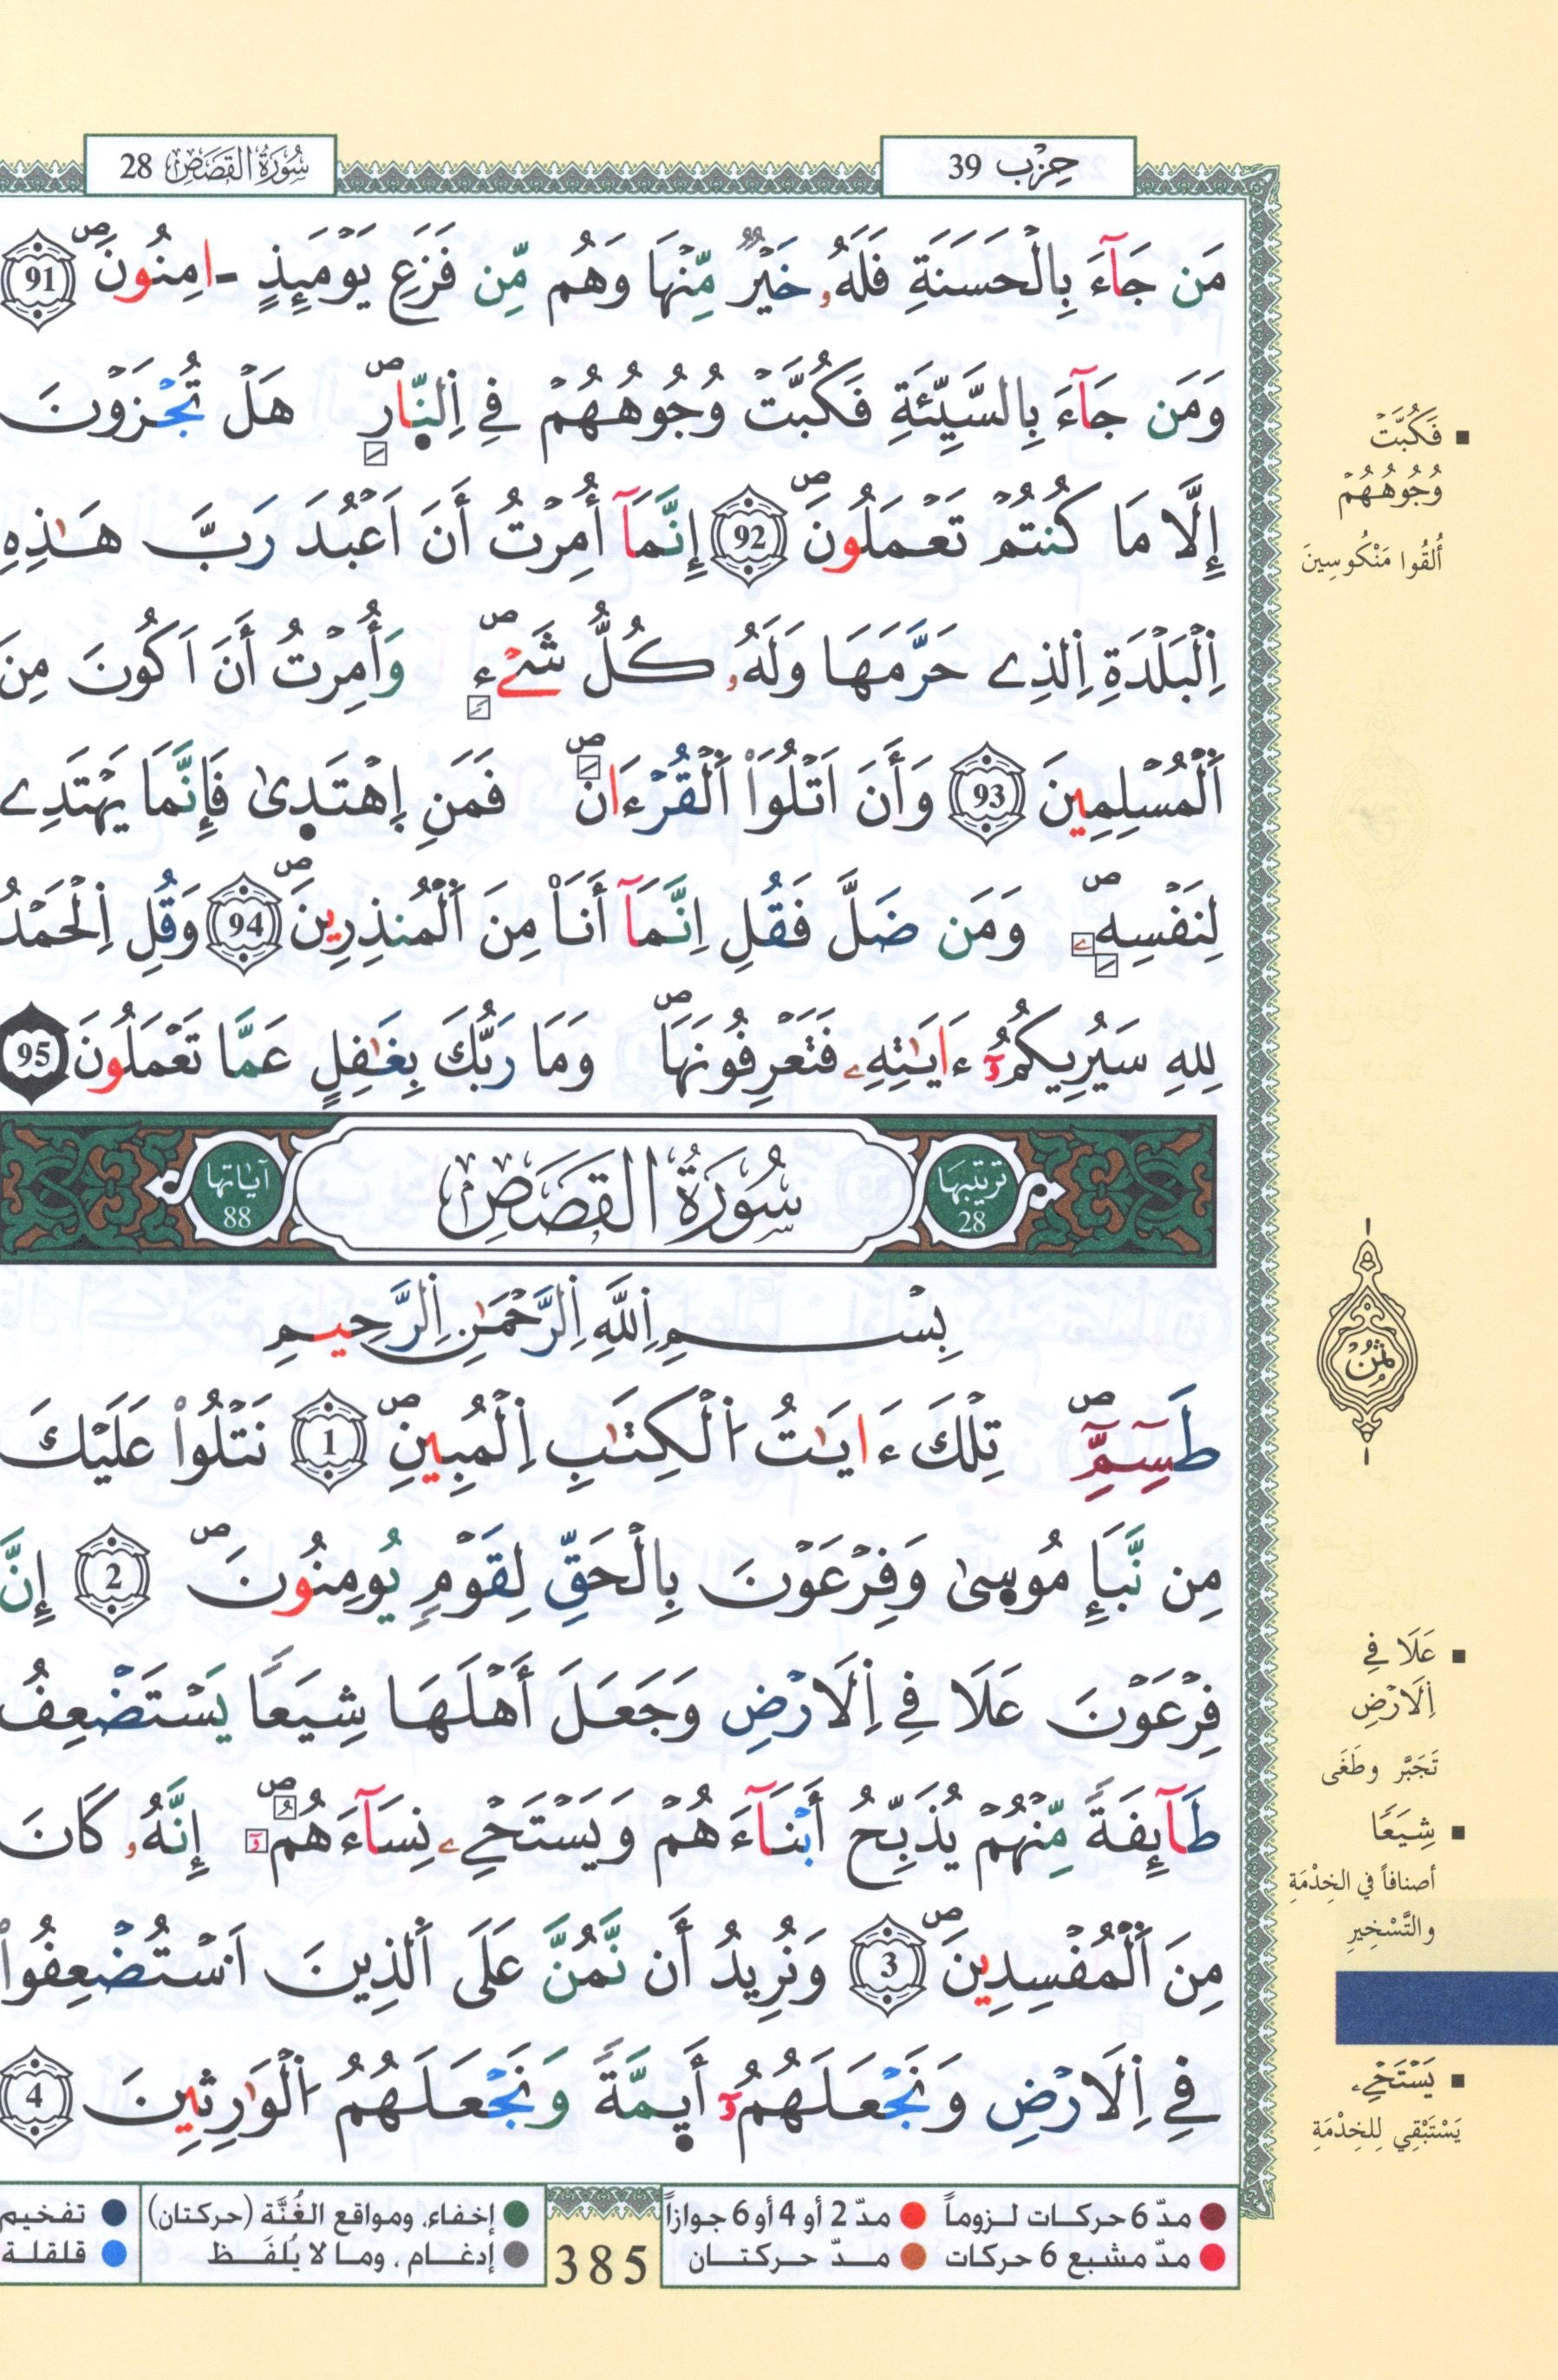 سُورَةُ القَصَصِ 28
حِزْب 39
مَن جَآءَ بِالْحَسَنَةِ فَلَهُۥ خَيْرٌ مِّنْهَا وَهُم مِّن فَزَعِ يَوْمَئِذٍ ـ امِنُونَۖ 91
وَمَن جَآءَ بِالسَّيِّئَةِ فَكُبَّتْ وُجُوهُهُمْ فِے اِ۬لنّ۪ارِۖ هَلْ تُجْزَوْنَ
إِلَّا مَا كُنتُمْ تَعْمَلُونَۖ 92 إِنَّمَآ أُمِرْتُ أَنَ اَعْبُدَ رَبَّ هَٰذِهِ
اِ۬لْبَلْدَةِ اِ۬لذِے حَرَّمَهَا وَلَهُۥ كُلُّ شَےْءٖۖ وَأُمِرْتُ أَنَ اَكُونَ مِنَ
اَ۬لْمُسْلِمِينَ 93 وَأَنَ اَتْلُوَاْ اَ۬لْقُرْءَانَۖ فَمَنِ اِ۪هْتَد۪ىٰ فَإِنَّمَا يَهْتَدِے
لِنَفْسِهِۦۖ وَمَن ضَلَّ فَقُلِ اِنَّمَآ أَنَا۠ مِنَ اَ۬لْمُنذِرِينَۖ 94 وَقُلِ اِ۬لْحَمْدُ
لِلهِ سَيُرِيكُمُۥٓ ءَايَٰتِهِۦ فَتَعْرِفُونَهَاۖ وَمَا رَبُّكَ بِغَٰفِلٍ عَمَّا تَعْمَلُونَ 95
تَرْتِيبُهَا 28 سُورَةُ القَصَصِ آيَاتُهَا 88
بِسْمِ اِ۬للَّهِ اِ۬لرَّحْمَٰنِ اِ۬لرَّحِيمِ
طَسِٓمِّٓۖ تِلْكَ ءَايَٰتُ اُ۬لْكِتَٰبِ اِ۬لْمُبِينِۖ 1 نَتْلُواْ عَلَيْكَ
مِن نَّبَإِ مُوس۪ىٰ وَفِرْعَوْنَ بِالْحَقِّ لِقَوْمٍ يُومِنُونَۖ 2 إِنَّ
فِرْعَوْنَ عَلَا فِے اِ۬لَارْضِ وَجَعَلَ أَهْلَهَا شِيَعًا يَسْتَضْعِفُ
طَآئِفَةً مِّنْهُمْ يُذَبِّحُ أَبْنَآءَهُمْ وَيَسْتَحْيِۦ نِسَآءَهُمُۥٓۖ إِنَّهُۥ كَانَ
مِنَ اَ۬لْمُفْسِدِينَۖ 3 وَنُرِيدُ أَن نَّمُنَّ عَلَى اَ۬لذِينَ اَ۟سْتُضْعِفُواْ
فِے اِ۬لَارْضِ وَنَجْعَلَهُمُۥٓ أَي۪مَّةً وَنَجْعَلَهُمُ اُ۬لْوَٰرِثِينَ 4
▪ فَكُبَّتْ
وُجُوهُهُمْ
أُلقُوا مَنْكُوسِينَ
ثُمُنْ
▪ عَلَا فِے
اِ۬لَارْضِ
تَجَبَّر وطَغَى
▪ شِيَعًا
أصنافاً في الخِدْمَةِ
والتَّسْخِيرِ
▪ يَسْتَحْيِۦ
يَسْتَبْقِي لِلخِدْمَةِ
مدّ 6 حركات لـزوماً مدّ 2 أو 4 أو 6 جوازاً
مدّ مشبع 6 حركات مــدّ حـركـتــان
385
إخفاء، ومواقع الغُنَّة (حركتان) تفخيم
إدغــام ، ومـا لا يُلفَــظ قلقلـة